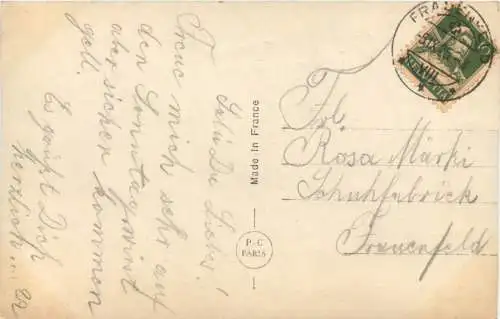 Salü Du Liebes!
Freue mich sehr auf
den Sonntag wirst
aber sicher kommen
gell.
Es grüßt Dich
herzlich
Made in France
P-C
PARIS
Frl.
Rosa Märki
Schuhfabrick
Frauenfeld